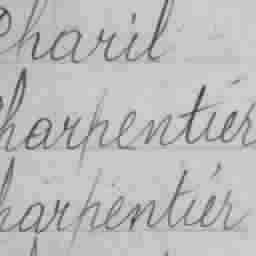 Charil
Charpentiér
harpentiér